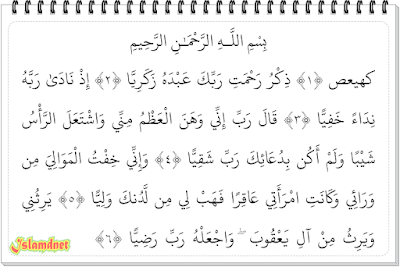 بِسْمِ اللَّـهِ الرَّحْمَـٰنِ الرَّحِيمِ
كهيعص ﴿١﴾ ذِكْرُ رَحْمَتِ رَبِّكَ عَبْدَهُ زَكَرِيَّا ﴿٢﴾ إِذْ نَادَىٰ رَبَّهُ
نِدَاءً خَفِيًّا ﴿٣﴾ قَالَ رَبِّ إِنِّي وَهَنَ الْعَظْمُ مِنِّي وَاشْتَعَلَ الرَّأْسُ
شَيْبًا وَلَمْ أَكُن بِدُعَائِكَ رَبِّ شَقِيًّا ﴿٤﴾ وَإِنِّي خِفْتُ الْمَوَالِيَ مِن
وَرَائِي وَكَانَتِ امْرَأَتِي عَاقِرًا فَهَبْ لِي مِن لَّدُنكَ وَلِيًّا ﴿٥﴾ يَرِثُنِي
وَيَرِثُ مِنْ آلِ يَعْقُوبَ ۖ وَاجْعَلْهُ رَبِّ رَضِيًّا ﴿٦﴾
Islamdnet